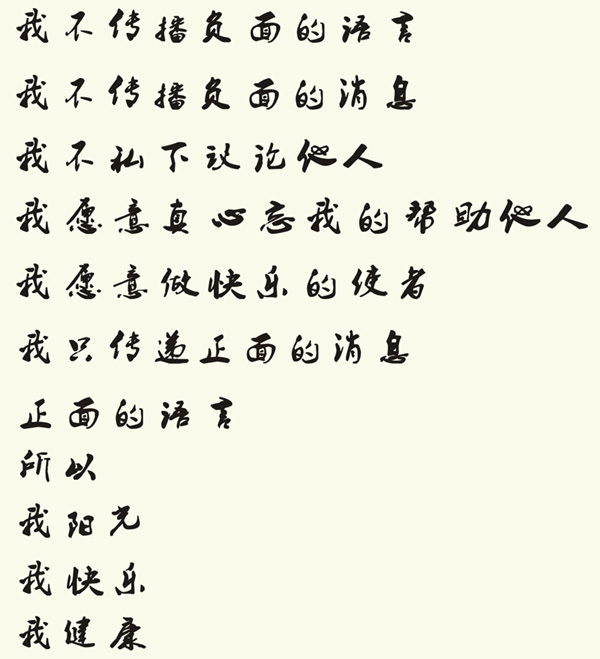 我不传播负面的语言
我不传播负面的消息
我不私下议论他人
我愿意真心忘我的帮助他人
我愿意做快乐的使者
我只传递正面的消息
正面的语言
所以
我阳光
我快乐
我健康